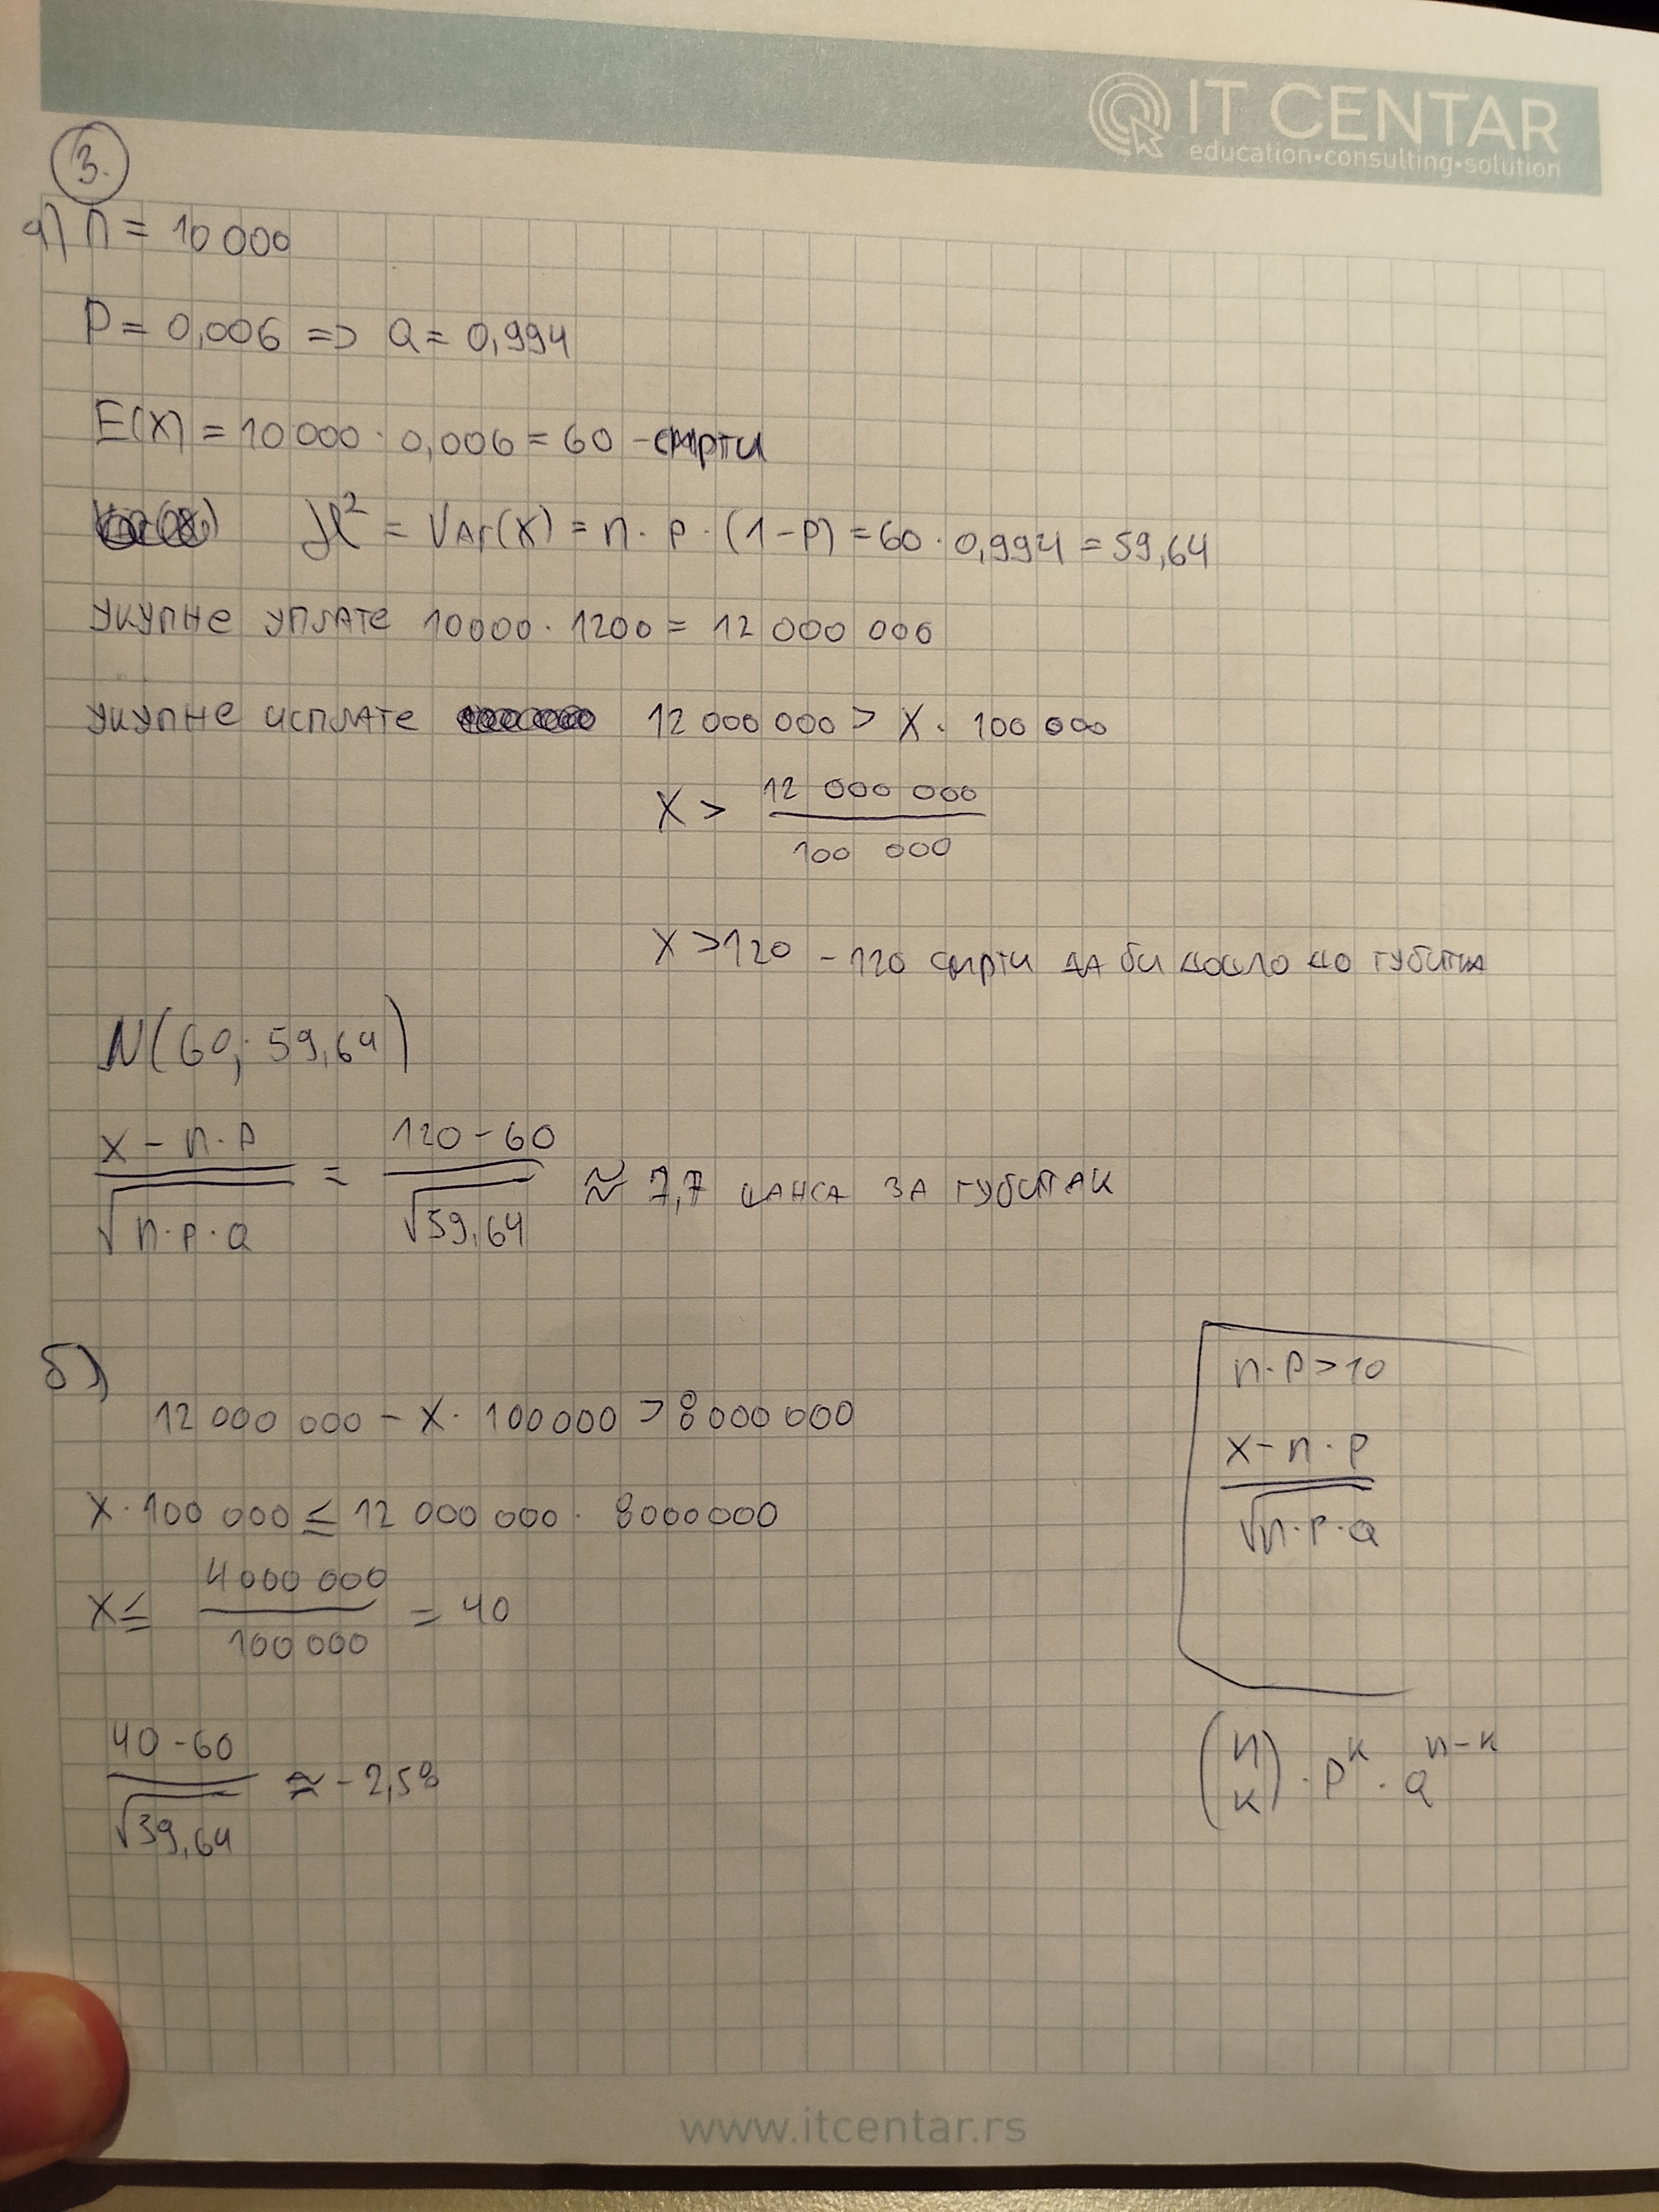 IT CENTAR
education•consulting•solution
3.
а) n = 10 000
P = 0,006 => Q = 0,994
E(X) = 10 000 · 0,006 = 60 - смрти
² = VAr(X) = n · P · (1-P) = 60 · 0,994 = 59,64
укупне уплате 10000 · 1200 = 12 000 000
укупне исплате 12 000 000 > X · 100 000
X > 12 000 000 / 100 000
X > 120 - 120 смрти да би дошло до губитка
N(60; 59,64)
X - n·P / √n·P·Q = 120 - 60 / √59,64 ≈ 7,7 шанса за губитак
б)
12 000 000 - X · 100000 > 8 000 000
X · 100 000 ≤ 12 000 000 · 8000000
X ≤ 4000 000 / 100 000 = 40
40 - 60 / √39,64 ≈ - 2,58
n·P > 10
X - n·P / √n·P·Q
(n k) · P^k · Q^n-k
www.itcentar.rs